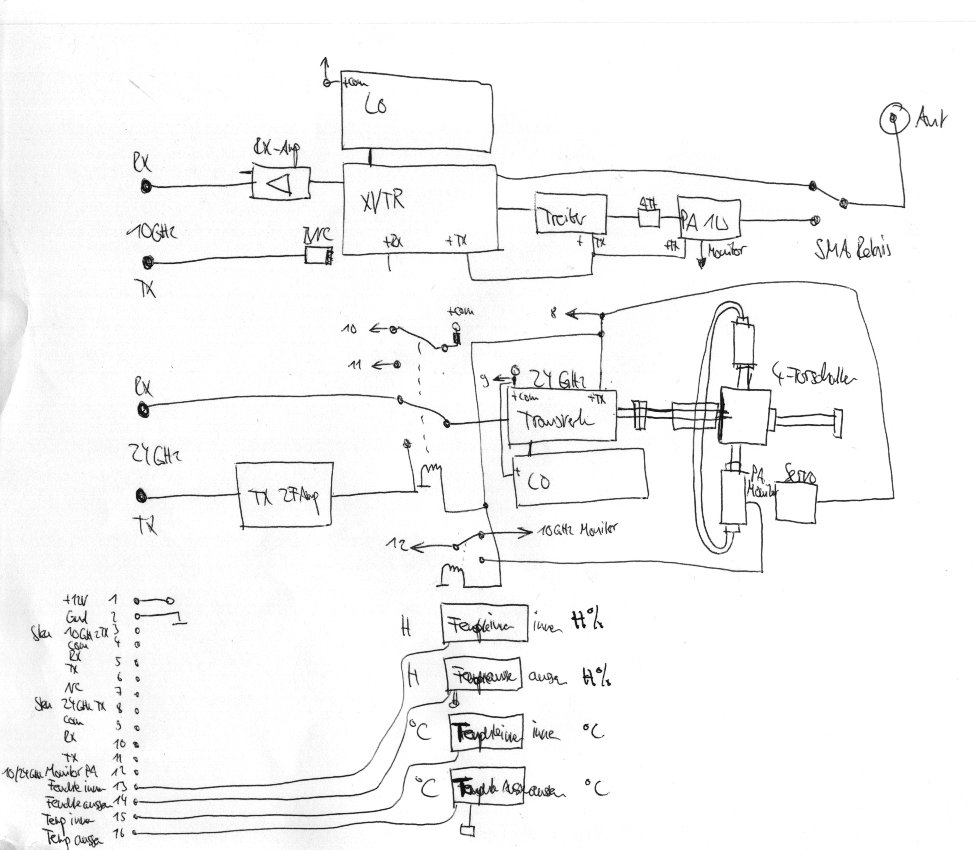 +com
LO
Ant
RX-Amp
RX
XVTR
Treiber
ATT
PA 1W
10GHz
BNC
+RX
+TX
+ TX
+TX
Monitor
SMA Relais
TX
+com
8
10
11
9
24 GHz
4-Torschalter
+com
+TX
RX
Transverter
24GHz
+
LO
PA
Monitor
Servo
TX ZF Amp
TX
12
10GHz Monitor
+12V 1
Gnd 2
Steu 10GHz TX 3
com 4
RX 5
TX 6
NC 7
Steu 24GHz TX 8
com 9
RX 10
TX 11
10/24GHz Monitor PA 12
Feuchte innen 13
Feuchte aussen 14
Temp innen 15
Temp aussen 16
H
innen H%
H
aussen H%
°C
innen °C
°C
aussen °C